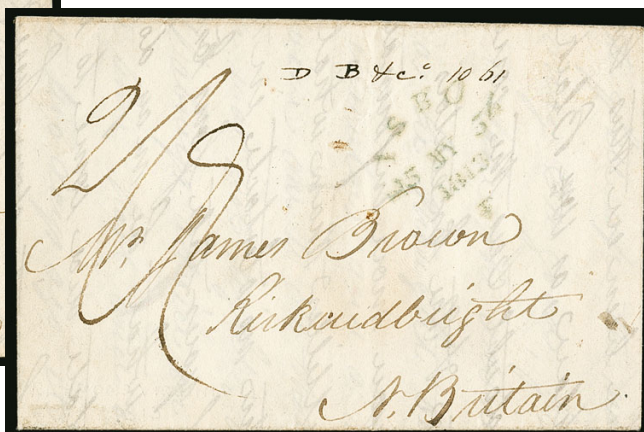 D B & Co. 10 61
2/8
LISBON
MY
1843
Mr. James Brown
Kirkcudbright
N. Britain.